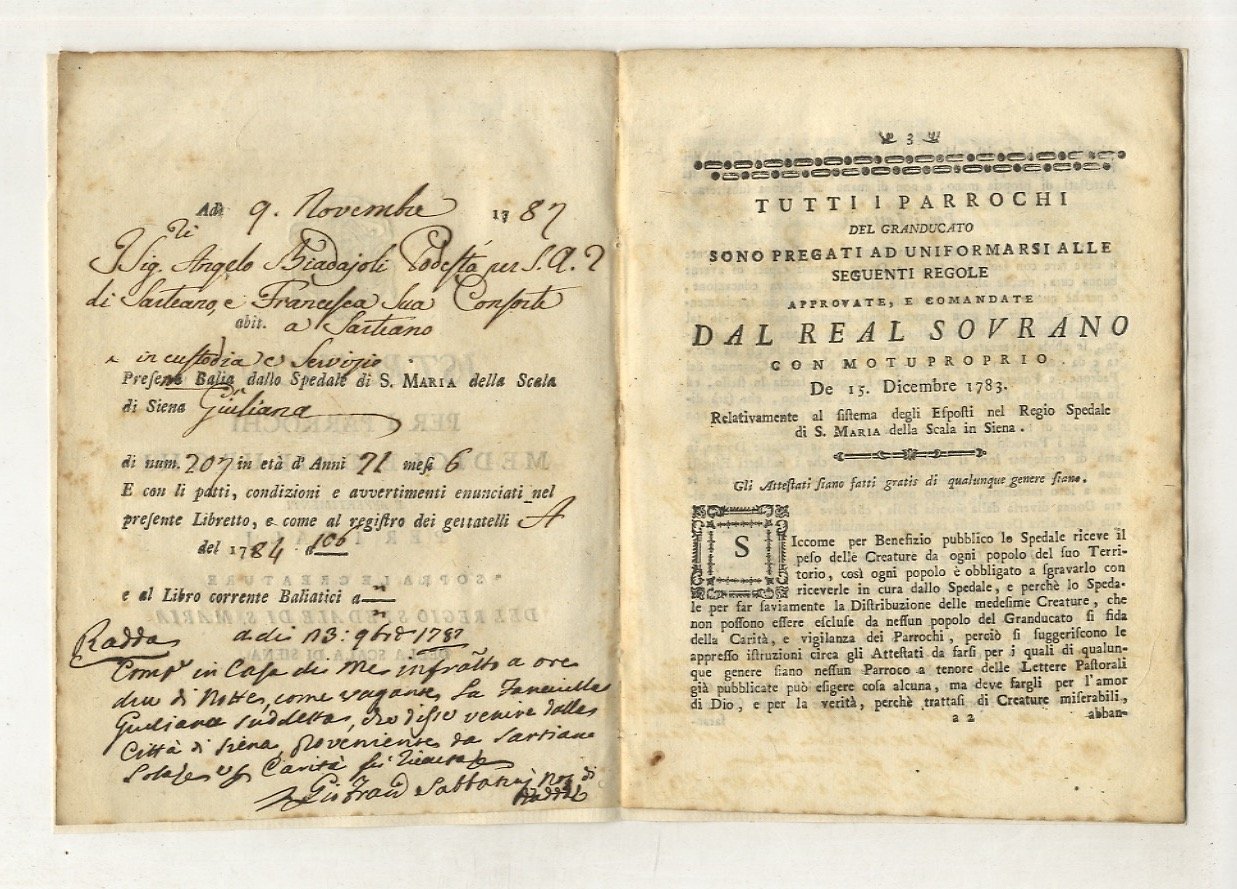 Adì 9. Novembre 1787
Sig. Angelo Biadajoli Podestà per S.A.
di Sarteano, e Francesca Sua Consorte
abit. a Sartiano
in custodia e Servizio
Balia dallo Spedale di S. MARIA della Scala
di Siena Giuliana
di num. 207 in età d' Anni 11 mesi 6
E con li patti, condizioni e avvertimenti enunciati nel
presente Libretto, e come al registro dei gettatelli A
del 1784 a 106
e al Libro corrente Baliatici a
Radda adì 13: 9bre 1787
in Casa di Me infratto a ore
due di Notte, come vagante La Fanciulla
Giuliana suddetta, che disse venire dalla
Città di Siena, Proveniente da Sartiano
Carità
Sabbatini
Radda
3
TUTTI I PARROCHI
DEL GRANDUCATO
SONO PREGATI AD UNIFORMARSI ALLE
SEGUENTI REGOLE
APPROVATE, E COMANDATE
DAL REAL SOVRANO
CON MOTUPROPRIO
De 15. Dicembre 1783.
Relativamente al sistema degli Esposti nel Regio Spedale
di S. MARIA della Scala in Siena.
Gli Attestati siano fatti gratis di qualunque genere siano.
SIccome per Benefizio pubblico lo Spedale riceve il
peso delle Creature da ogni popolo del suo Terri-
torio, così ogni popolo è obbligato a sgravarlo con
riceverle in cura dallo Spedale, e perchè lo Speda-
le per far saviamente la Distribuzione delle medesime Creature, che
non possono essere escluse da nessun popolo del Granducato si fida
della Carità, e vigilanza dei Parrochi, perciò si suggeriscono le
appresso istruzioni circa gli Attestati da farsi per i quali di qualun-
que genere siano nessun Parroco a tenore delle Lettere Pastorali
già pubblicate può esigere cosa alcuna, ma deve fargli per l'amor
di Dio, e per la verità, perchè trattasi di Creature miserabili,
a 2 abban-